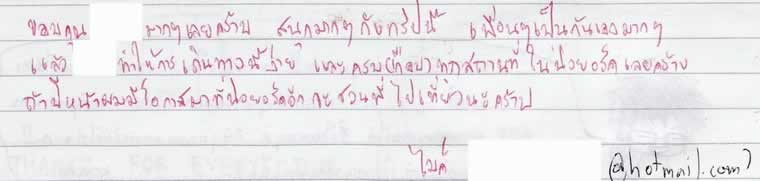 ขอบคุณ มากๆเลยคร้าบ สนุกมากๆกับทริปนี้ เพื่อนๆเป็นกันเองมากๆ
แล้ว ทำให้การเดินทางนี้ง่าย และครบเกือบทุกสถานที่ในนิวยอร์คเลยคร้าบ
ถ้าปีหน้าผมมีโอกาสมาที่นิวยอร์คอีก จะชวนพี่ไปเที่ยวนะคร้าบ
ไมค์ (@hotmail.com)